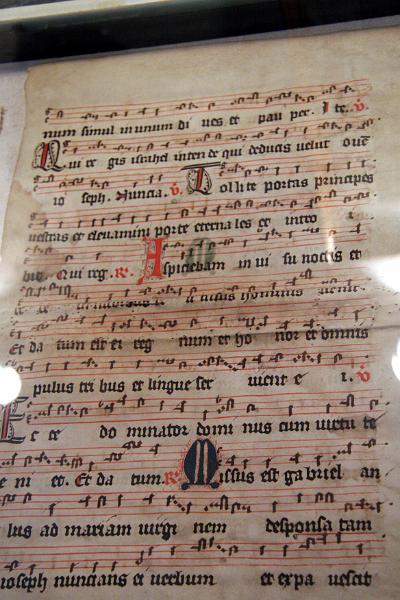 num simul in unum di ues et pau per. I te. ℣.
Qui re gis israhel inten de qui deducis uelut ouē
io seph. Nuncia. ℣. Tollite portas principes
uestras et eleuamini porte eternales et intro i
bit. Qui reg. ℟. Aspiciebam in ui su noctis et
ce in nubibus celi filius hominis uenie
Et da tum est ei reg num et ho nor et omnis
pulus tri bus et lingue ser uient e i. ℣.
Ec ce do minator domi nus cum uirtu te
e ni et. Et da tum. ℟. Missus est gabriel an
lus ad mariam uirgi nem desponsa tam
ioseph nuncians ei uerbum et expa uescit